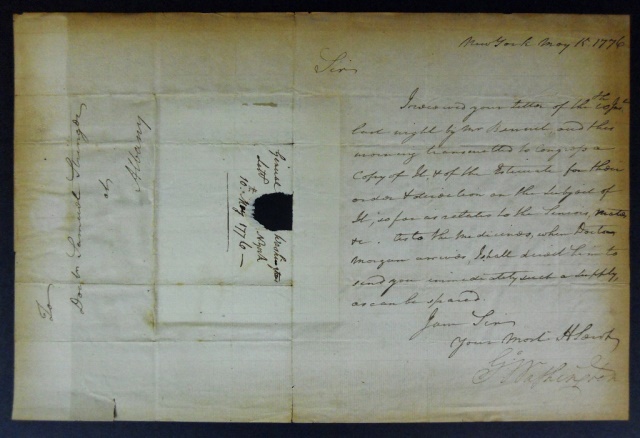 New York May 15. 1776
Sir
I received your letter of the
last night by Mr Bennet, and this
morning transmitted to Congress a
Copy of It & of the Estimate for their
order & direction on the Subject of
It, so far as relates to the
&c. As to the Medicines, when Doctor
Morgan arrives, I shall direct him to
send you immediately such a supply
as can be spared.
I am Sir
Your Most H Servt
Go Washington
General Washington
Lettr
10th May 1776
To
Doctor Samuel Stringer
at
Albany